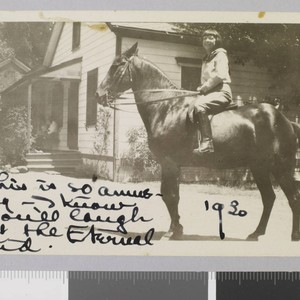 This is so amus-
ing - I know
you'll laugh
at the Eternal
1930